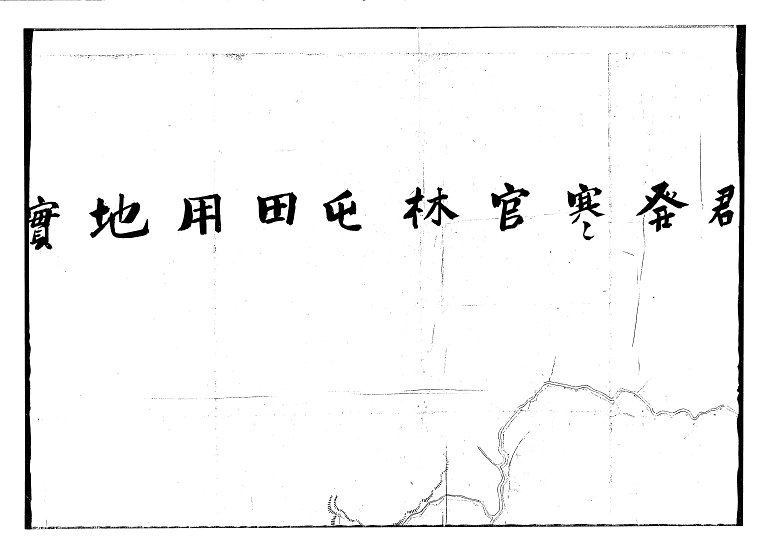 君發寒官林屯田用地實